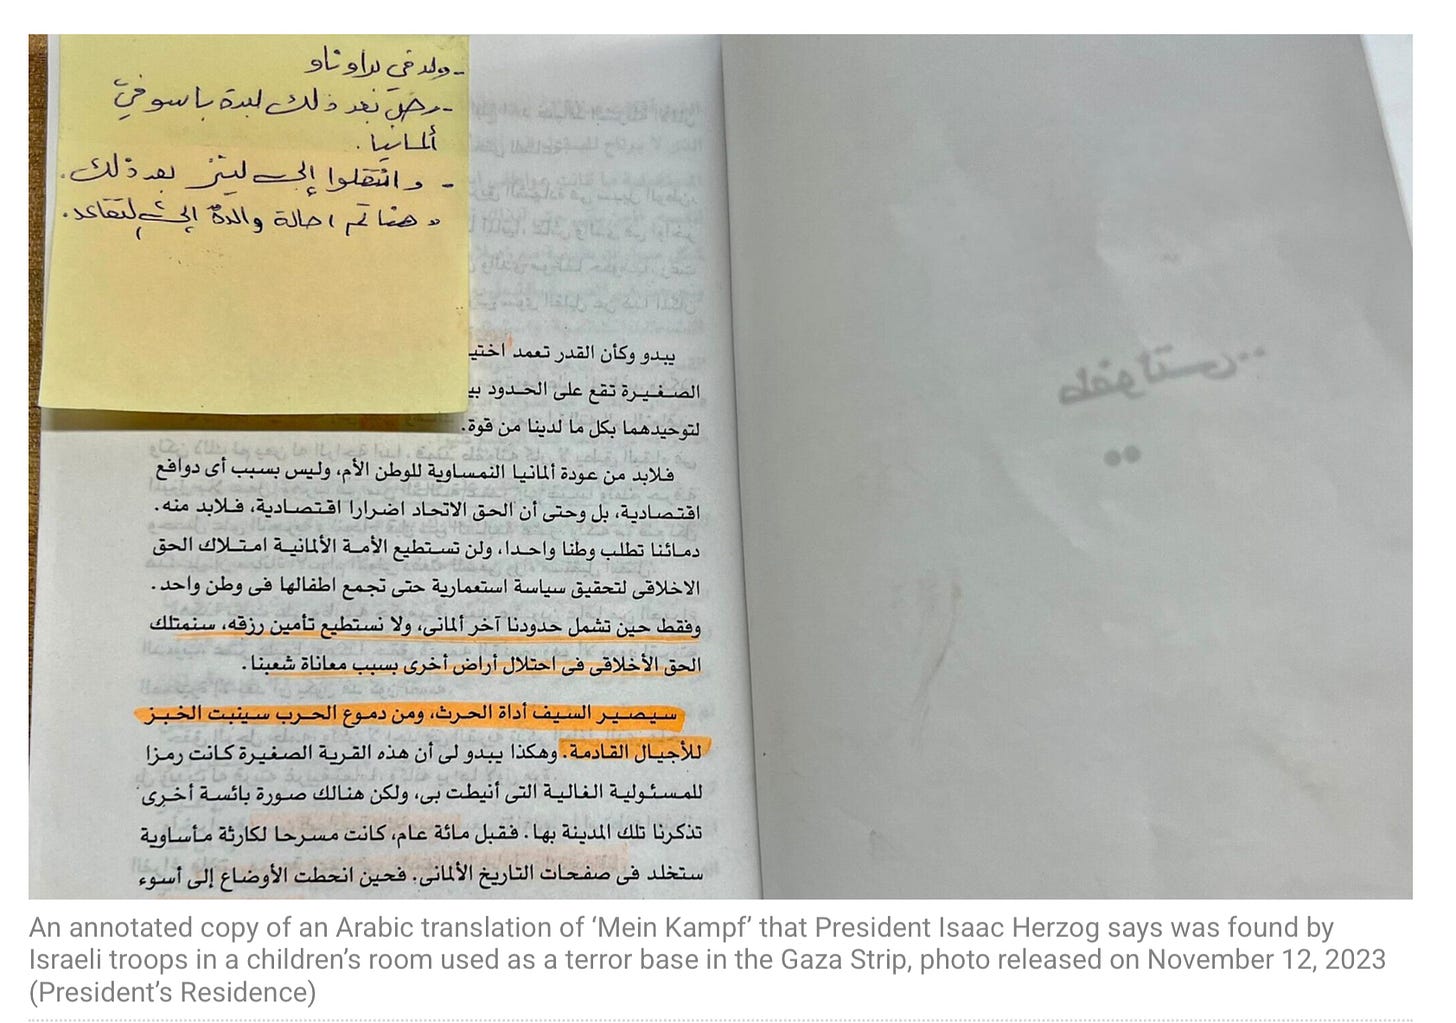 - ولد في براوناو
- رحل بعد ذلك لبدة باسو في
ألمانيا.
- وانتقلوا إلى لينز بعد ذلك.
وهنا تم احالة والدة إلى لتقاعد.
يبدو وكأن القدر تعمد
الصغيرة تقع على الحدود
لتوحيدهما بكل ما لدينا من قوة.
فلابد من عودة ألمانيا النمساوية للوطن الأم، وليس بسبب أى دوافع
اقتصادية، بل وحتى أن الحق الاتحاد اضرارا اقتصادية، فلابد منه.
دمائنا تطلب وطنا واحدا، ولن تستطيع الأمة الألمانية امتلاك الحق
الاخلاقى لتحقيق سياسة استعمارية حتى تجمع اطفالها فى وطن واحد.
وفقط حين تشمل حدودنا آخر ألمانى، ولا نستطيع تأمين رزقه، سنمتلك
الحق الأخلاقى فى احتلال أراض أخرى بسبب معاناة شعبنا.
سيصير السيف أداة الحرث، ومن دموع الحرب سينبت الخبز
للأجيال القادمة. وهكذا يبدو لى أن هذه القرية الصغيرة كانت رمزا
للمسئولية الغالية التى أنيطت بى، ولكن هنالك صورة بائسة أخرى
تذكرنا تلك المدينة بها. فقبل مائة عام، كانت مسرحا لكارثة مأساوية
ستخلد فى صفحات التاريخ الألمانى. فحين انحطت الأوضاع إلى أسوء
An annotated copy of an Arabic translation of ‘Mein Kampf’ that President Isaac Herzog says was found by
Israeli troops in a children’s room used as a terror base in the Gaza Strip, photo released on November 12, 2023
(President’s Residence)